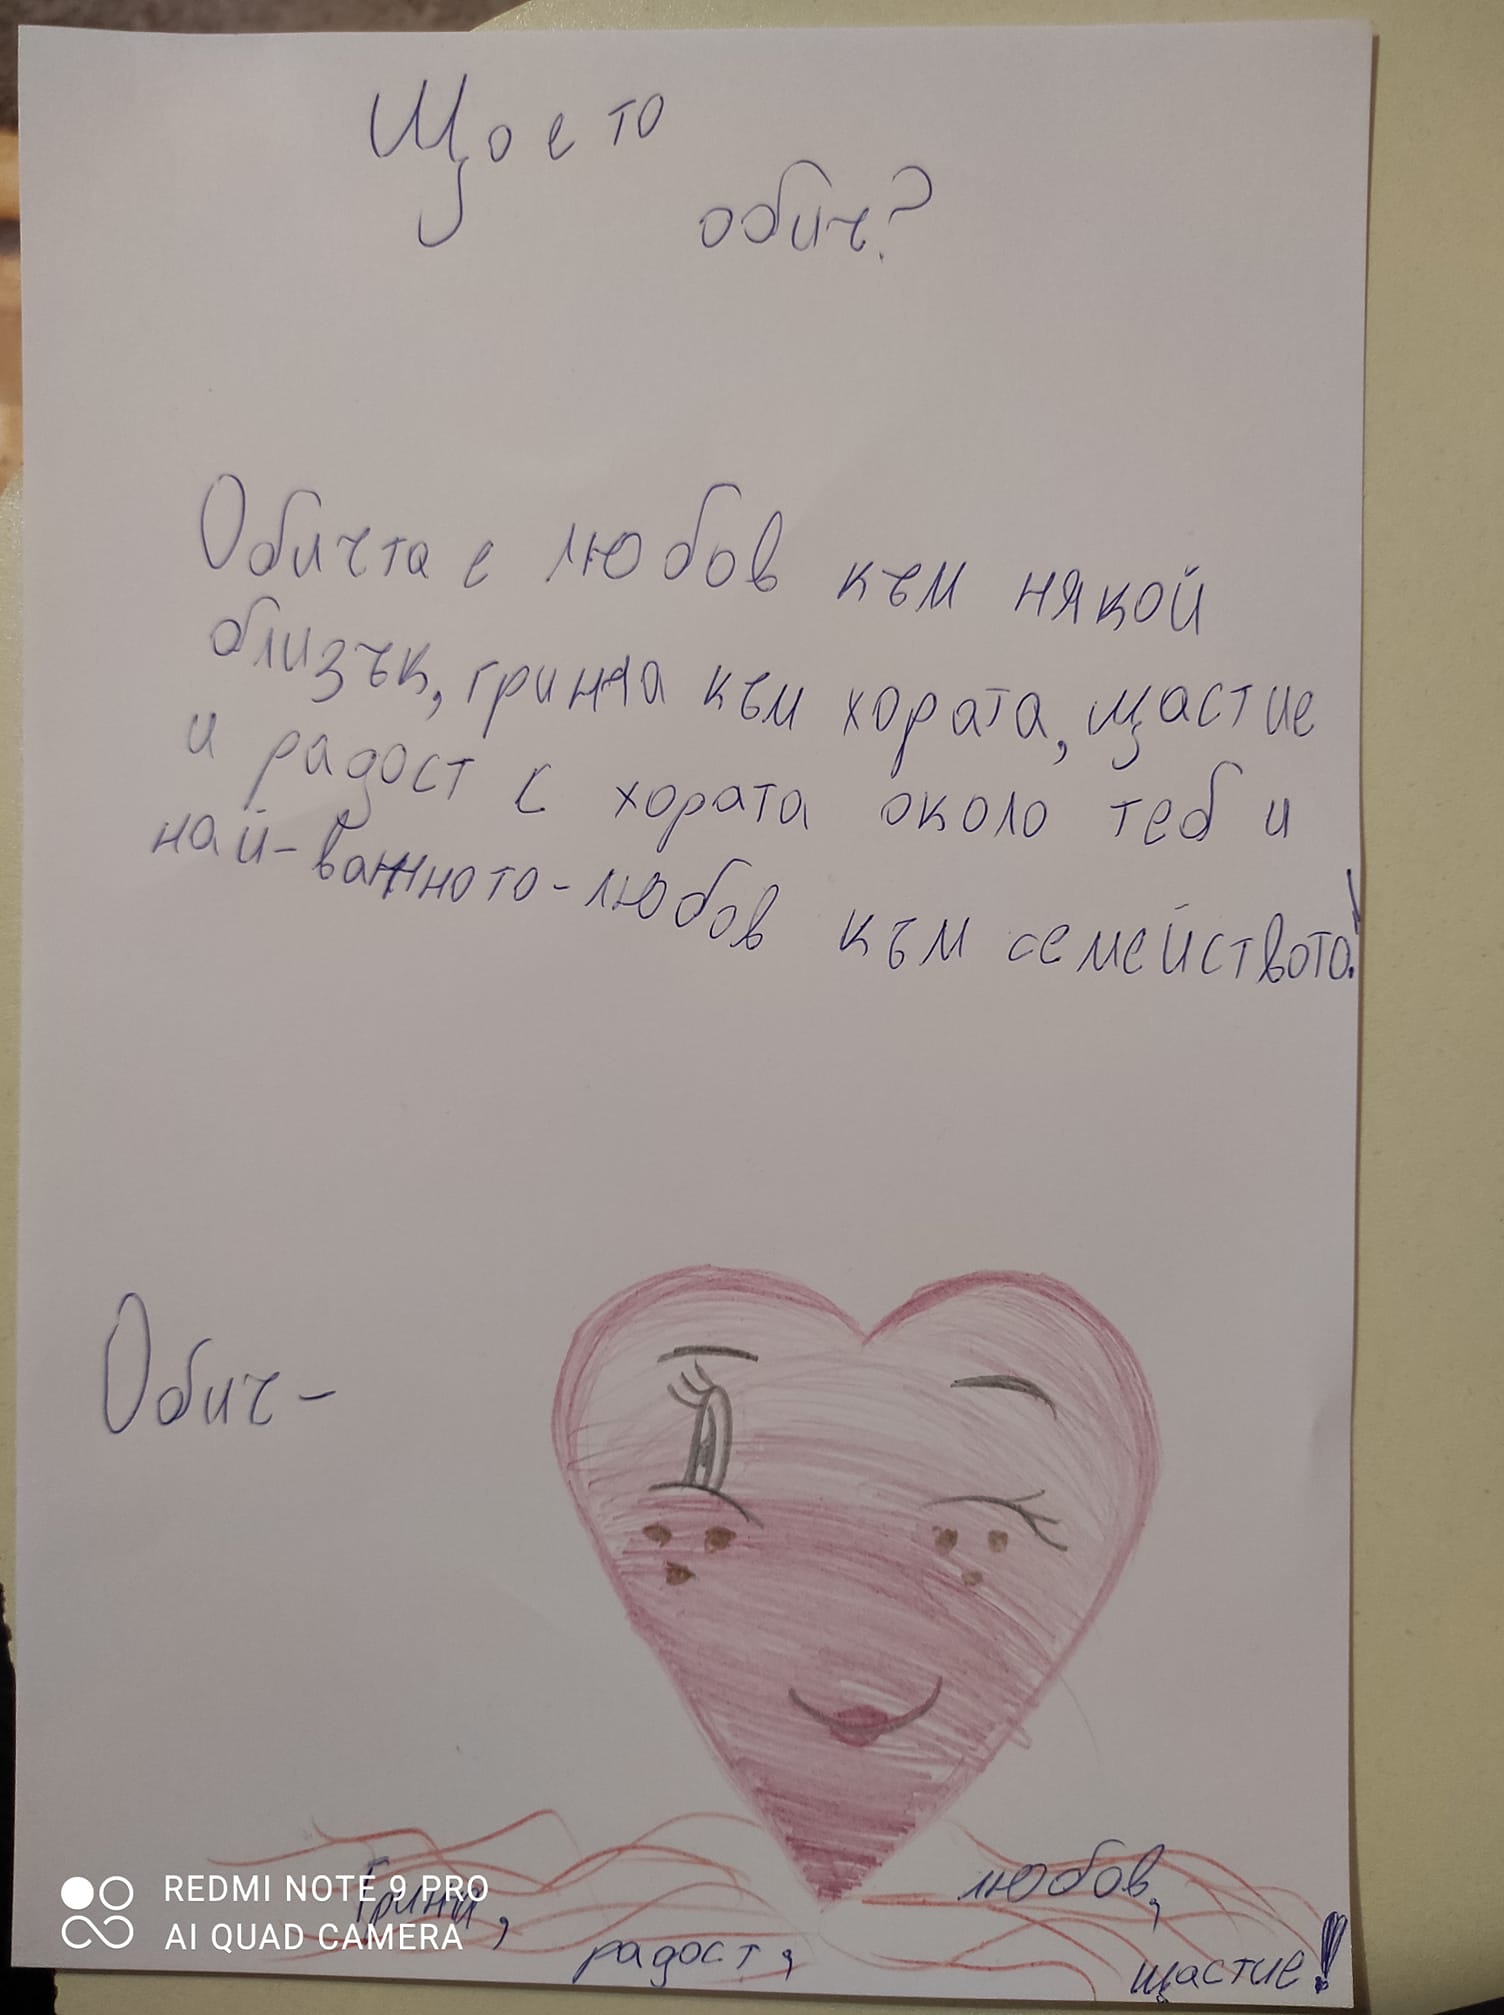 Що е то
обич?
Обичта е любов към някой
близък, грижа към хората, щастие
и радост с хората около теб и
най-важното-любов към семейството!
Обич-
любов,
радост,
щастие!
REDMI NOTE 9 PRO
AI QUAD CAMERA